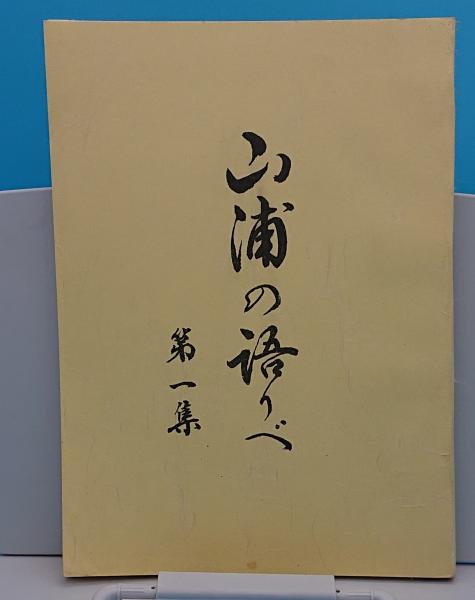 山浦の語りべ
第一集